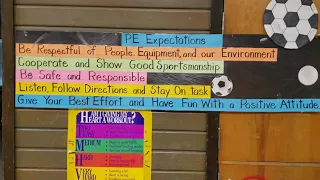 PE Expectations
Be Respectful of People, Equipment, and our Environment
Cooperate and Show Good Sportsmanship
Be Safe and Responsible
Listen, Follow Directions and Stay On Task
Give Your Best Effort and Have Fun With a Positive Attitude.
AM I GIVING MY
HEART A WORKOUT?
MEDIUM
HARD
VERY